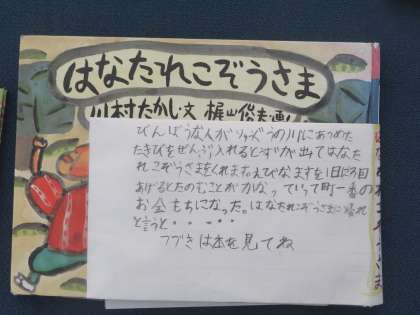 はなたれこぞうさま
川村たかし・文 梶山俊夫・画
びんぼうな人がりゅうぐうの川にあつめた
たきびをぜんぶ入れるとおずが出てはなた
れこぞうさまをくれます。えびなますを1日に3回
あげるとたのむことがかなっていって町一番の
お金もちになった。はなたれこぞうさまに帰れ
と言うと・・・・・・
つづきは本を見てね